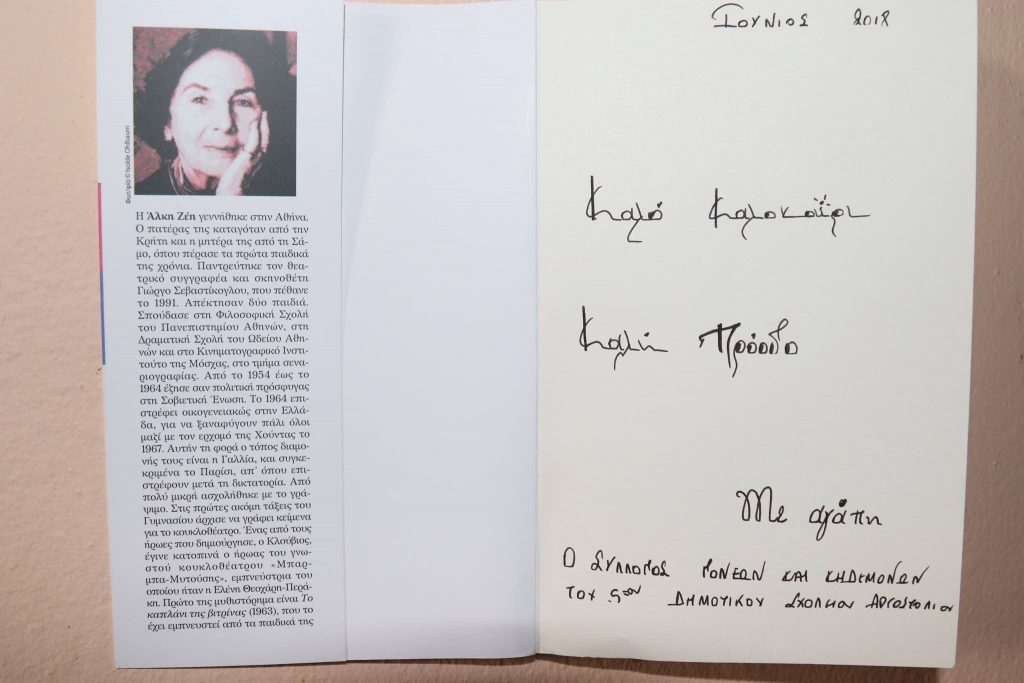 Φωτ/φία © Isolde Ohlbaum
Η Άλκη Ζέη γεννήθηκε στην Αθήνα.
Ο πατέρας της καταγόταν από την
Κρήτη και η μητέρα της από τη Σά-
μο, όπου πέρασε τα πρώτα παιδικά
της χρόνια. Παντρεύτηκε τον θεα-
τρικό συγγραφέα και σκηνοθέτη
Γιώργο Σεβαστίκογλου, που πέθανε
το 1991. Απέκτησαν δύο παιδιά.
Σπούδασε στη Φιλοσοφική Σχολή
του Πανεπιστημίου Αθηνών, στη
Δραματική Σχολή του Ωδείου Αθη-
νών και στο Κινηματογραφικό Ινστι-
τούτο της Μόσχας, στο τμήμα σενα-
ριογραφίας. Από το 1954 έως το
1964 έζησε σαν πολιτική πρόσφυγας
στη Σοβιετική Ένωση. Το 1964 επι-
στρέφει οικογενειακώς στην Ελλά-
δα, για να ξαναφύγουν πάλι όλοι
μαζί με τον ερχομό της Χούντας το
1967. Αυτήν τη φορά ο τόπος διαμο-
νής τους είναι η Γαλλία, και συγκε-
κριμένα το Παρίσι, απ' όπου επι-
στρέφουν μετά τη δικτατορία. Από
πολύ μικρή ασχολήθηκε με το γρά-
ψιμο. Στις πρώτες ακόμη τάξεις του
Γυμνασίου άρχισε να γράφει κείμενα
για το κουκλοθέατρο. Ένας από τους
ήρωες που δημιούργησε, ο Κλούβιος,
έγινε κατοπινά ο ήρωας του γνω-
στού κουκλοθεάτρου «Μπαρ-
μπα-Μυτούσης», εμπνεύστρια του
οποίου ήταν η Ελένη Θεοχάρη-Περά-
κη. Πρώτο της μυθιστόρημα είναι Το
καπλάνι της βιτρίνας (1963), που το
έχει εμπνευστεί από τα παιδικά της
ΙΟΥΝΙΟΣ 2018
Καλό Καλοκαίρι
Καλή Πρόοδο
Με αγάπη
Ο ΣΥΛΛΟΓΟΣ ΓΟΝΕΩΝ ΚΑΙ ΚΗΔΕΜΟΝΩΝ
ΤΟΥ ΔΗΜΟΤΙΚΟΥ ΣΧΟΛΕΙΟΥ ΑΡΓΟΣΤΟΛΙΟΥ